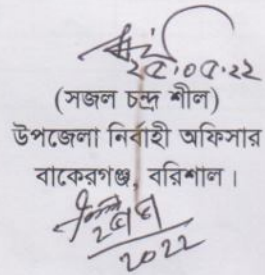 ২৫.০৫.২২
(সজল চন্দ্র শীল)
উপজেলা নির্বাহী অফিসার
বাকেরগঞ্জ, বরিশাল।
২০২২